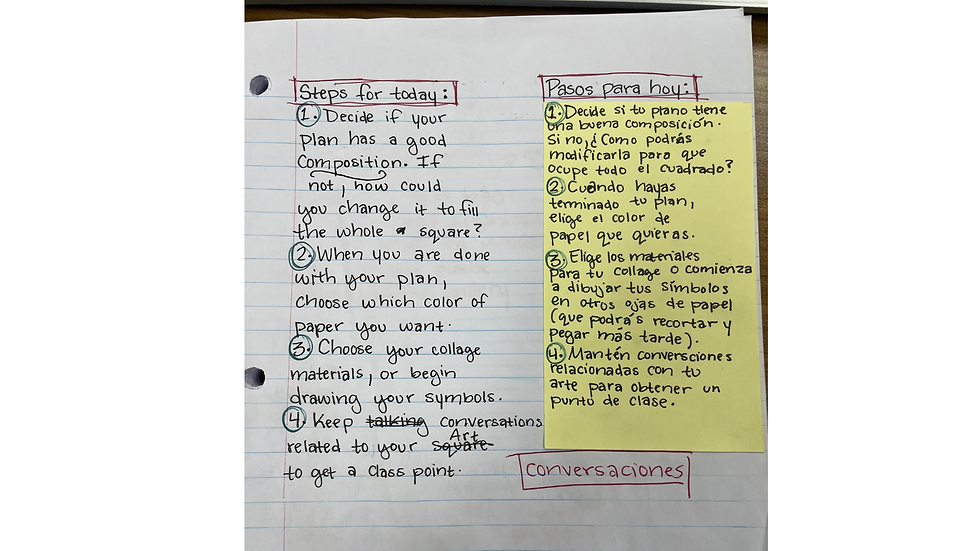 Steps for today:
1. Decide if your
plan has a good
Composition. If
not, how could
you change it to fill
the whole square?
2. When you are done
with your plan,
choose which color of
paper you want.
3. Choose your collage
materials, or begin
drawing your symbols.
4. Keep talking conversations
related to your square Art
to get a class point.
Pasos para hoy:
1. Decide si tu plano tiene
una buena composición.
Si no,¿Como podrás
modificarla para que
ocupe todo el cuadrado?
2. Cuando hayas
terminado tu plan,
elige el color de
papel que quieras.
3. Elige los materiales
para tu collage o comienza
a dibujar tus símbolos
en otros ojas de papel
(que podrás recortar y
pegar más tarde).
4. Mantén conversciones
relacionadas con tu
arte para obtener un
punto de clase.
conversaciones